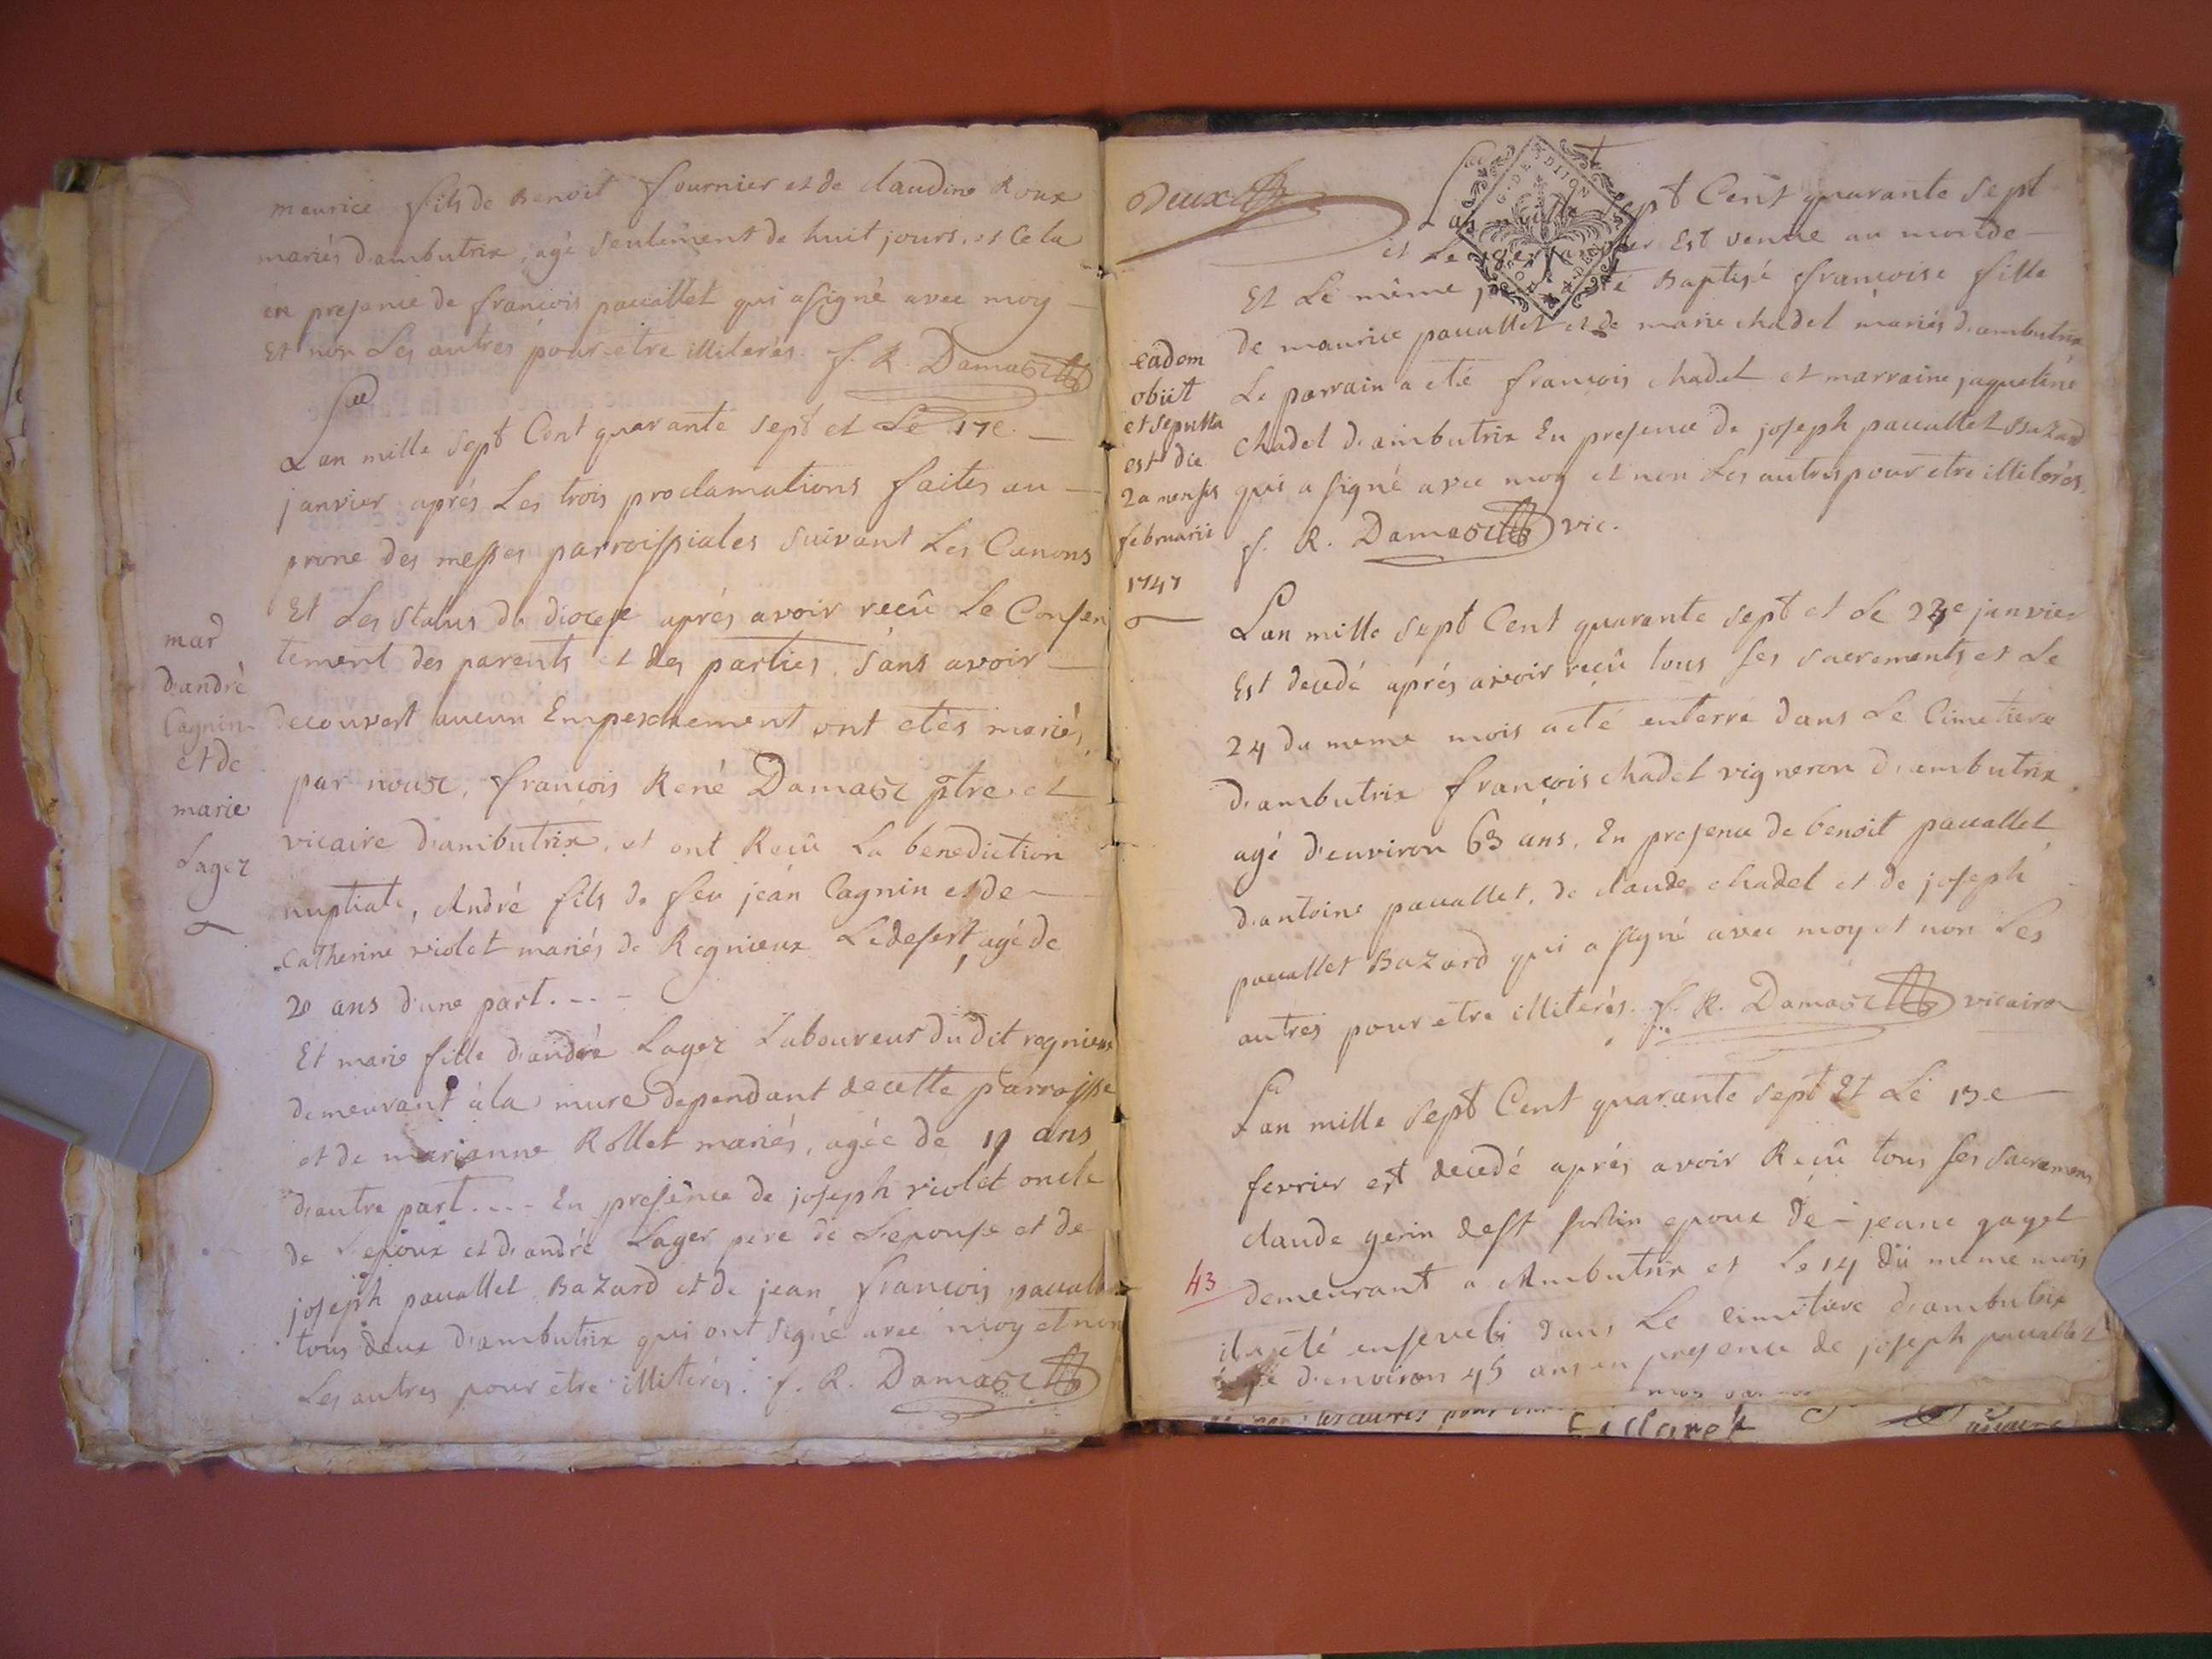 maurice fils de Benoit fournier et de claudine Roux
mariés d'ambutrix, agé seulement de huit jours. et cela
en presence de françois pauallet qui a signé avec moy
Et non Les autres pour etre illiterés. f. R. Damasc
Lan mille sept Cent quarante sept et Le 17e
janvier aprés Les trois proclamations faites au
prone des messes parroissiales suivant Les Canons
Et Les Status du diocese aprés avoir reçû Le Consen
tement des parents et des parties, sans avoir
decouvert aucun Empeschement ont etés mariés
par nous, françois René Damasc ptre et
vicaire d'ambutrix, et ont Reçû La benediction
nuptiale, André fils de feu jean Cagnin et de
Catherine violet mariés de Regnieux Ledesert, agé de
20 ans d'une part. - - -
Et marie fille d'andré Lager Laboureur dudit regnieux
demeurant à la mure dependant de cette parroisse
et de marianne Rollet mariés, agée de 19 ans
d'autre part. - - - En presence de joseph violet oncle
de L'epoux et d'andré Lager pere de L'epouse et de
joseph pauallet Bazard et de jean françois pauallet
tous deux d'ambutrix qui ont signé avec moy et non
Les autres pour etre illiterés. f. R. Damasc
mar
d'andré
Cagnin
et de
marie
Lager
Deux
G. DE DIJON
Lan mille sept Cent quarante sept
et Le janvier Est venue au monde
Et Le même été Baptisé françoise fille
de maurice pauallet et de marie chadel mariés d'ambutrix
Le parrain a eté françois chadel et marraine jaqueline
chadel d'ambutrix En presence de joseph pauallet Bazard
qui a signé avec moy et non Les autres pour etre illiterés.
f. R. Damasc vic.
eadem
obiit
et sepulta
est die
2a mensis
februarii
1747
Lan mille sept Cent quarante sept et Le janvier
Est decedé aprés avoir reçû tous ses sacrements et Le
24 du meme mois a eté enterré dans Le Cimetiere
d'ambutrix françois chadel vigneron d'ambutrix
agé d'environ 63 ans. En presence de benoit pauallet
d'antoine pauallet, de claude chadel et de joseph
pauallet Bazard qui a signé avec moy et non Les
autres pour etre illiterés. f. R. Damasc vicaire
Lan mille sept Cent quarante sept Et Le 13e
fevrier est decedé aprés avoir Reçû tous ses sacremens
claude gerin epoux de jeane gaget
demeurant a Ambutrix et Le 14 du même mois
il a eté enseveli dans Le cimetiere d'ambutrix
agé d'environ 45 ans en presence de joseph pauallet
43